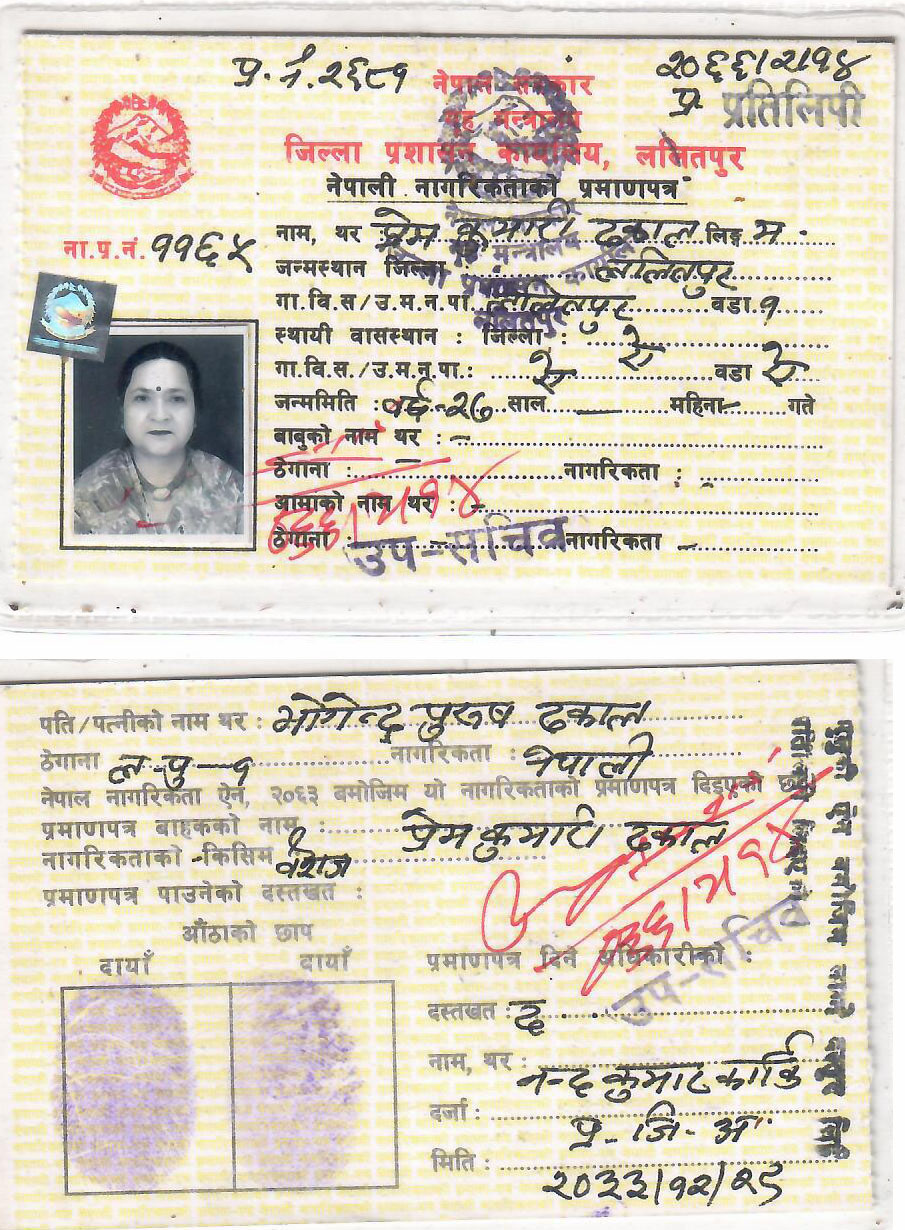 प्र. नं. २६८१
२०६६।२।१४
नेपाल सरकार
प्र. प्रतिलिपी
गृह मन्त्रालय
जिल्ला प्रशासन कार्यालय, ललितपुर
नेपाली नागरिकताको प्रमाणपत्र
ना.प्र.नं. ११६५
नाम, थर प्रेम कुमारी ढकाल लिङ्ग म.
जन्मस्थान जिल्ला : ललितपुर
गा.वि.स/उ.म.न.पा. ललितपुर वडा १
स्थायी वासस्थान : जिल्ला : ऐ
गा.वि.स./उ.म.न.पा.: ऐ वडा ऐ
जन्ममिति : वर्ष-२७ साल — महिना – गते
बाबुको नाम थर : –
ठेगाना : – नागरिकता : –
आमाको नाम थर : –
ठेगाना : – नागरिकता –
उप-सचिव
पति/पत्नीको नाम थर : भोगेन्द्र पुरुष ढकाल
ठेगाना ल.पु.—१ नागरिकता : नेपाली
नेपाल नागरिकता ऐन, २०६३ बमोजिम यो नागरिकताको प्रमाणपत्र दिइएको छ
प्रमाणपत्र बाहकको नाम : प्रेम कुमारी ढकाल
नागरिकताको किसिम वंशज
प्रमाणपत्र पाउनेको दस्तखत :
औंठाको छाप
दायाँ दायाँ
प्रमाणपत्र दिने अधिकारीको :
उप-सचिव
दस्तखत : द. . .
नाम, थर : नन्द कुमार कार्कि
दर्जा : प्र. जि. अ.
मिति : २०३३/१२/२९